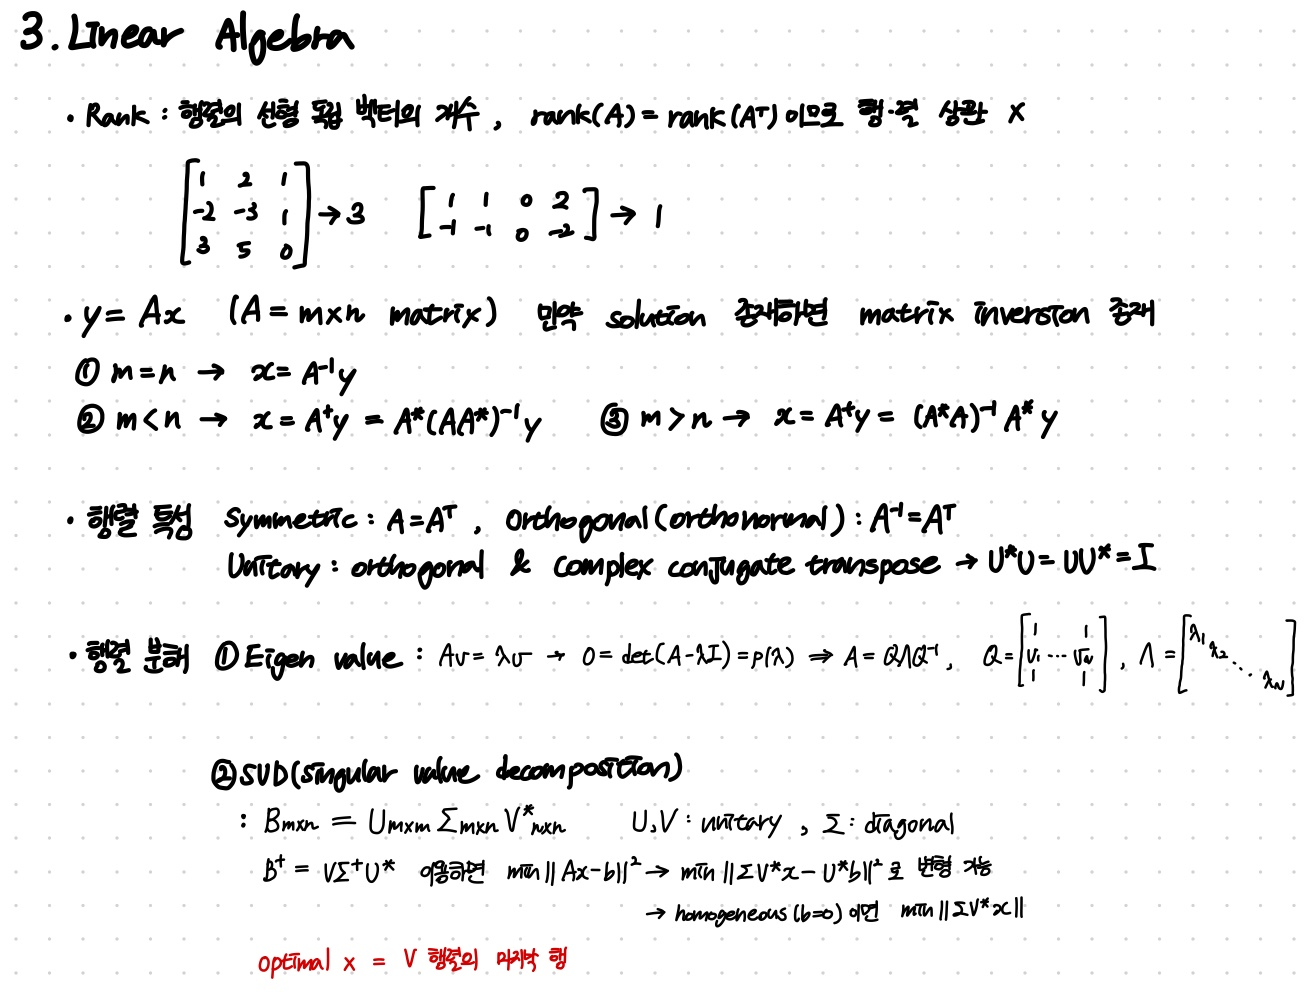 3. Linear Algebra
• Rank : 행렬의 선형 독립 벡터의 개수, rank(A) = rank(Aᵀ) 이므로 행·열 상관 X
[1 2 1; -2 -3 1; 3 5 0] → 3   [1 1 0 2; -1 -1 0 -2] → 1
• y = Ax (A = m×n matrix) 만약 solution 존재하면 matrix inversion 존재
① m = n → x = A⁻¹y
② m < n → x = A⁺y = A*(AA*)⁻¹y   ③ m > n → x = A⁺y = (A*A)⁻¹A*y
• 행렬 특성 Symmetric : A = Aᵀ, Orthogonal(orthonormal) : A⁻¹ = Aᵀ
Unitary : orthogonal & complex conjugate transpose → U*U = UU* = I
• 행렬 분해 ① Eigen value : Av = λv → 0 = det(A-λI) = p(λ) ⇒ A = QΛQ⁻¹, Q = [v₁ ⋯ v_N], Λ = [λ₁ λ₂ ⋱ λ_N]
② SVD(singular value decomposition)
: Bm×n = Um×m Σm×n V*n×n   U,V : unitary, Σ : diagonal
B⁺ = VΣ⁺U* 이용하면 min‖Ax-b‖² → min‖ΣV*x - U*b‖² 로 변형 가능
→ homogeneous (b=0) 이면 min‖ΣV*x‖
optimal x = V 행렬의 마지막 행